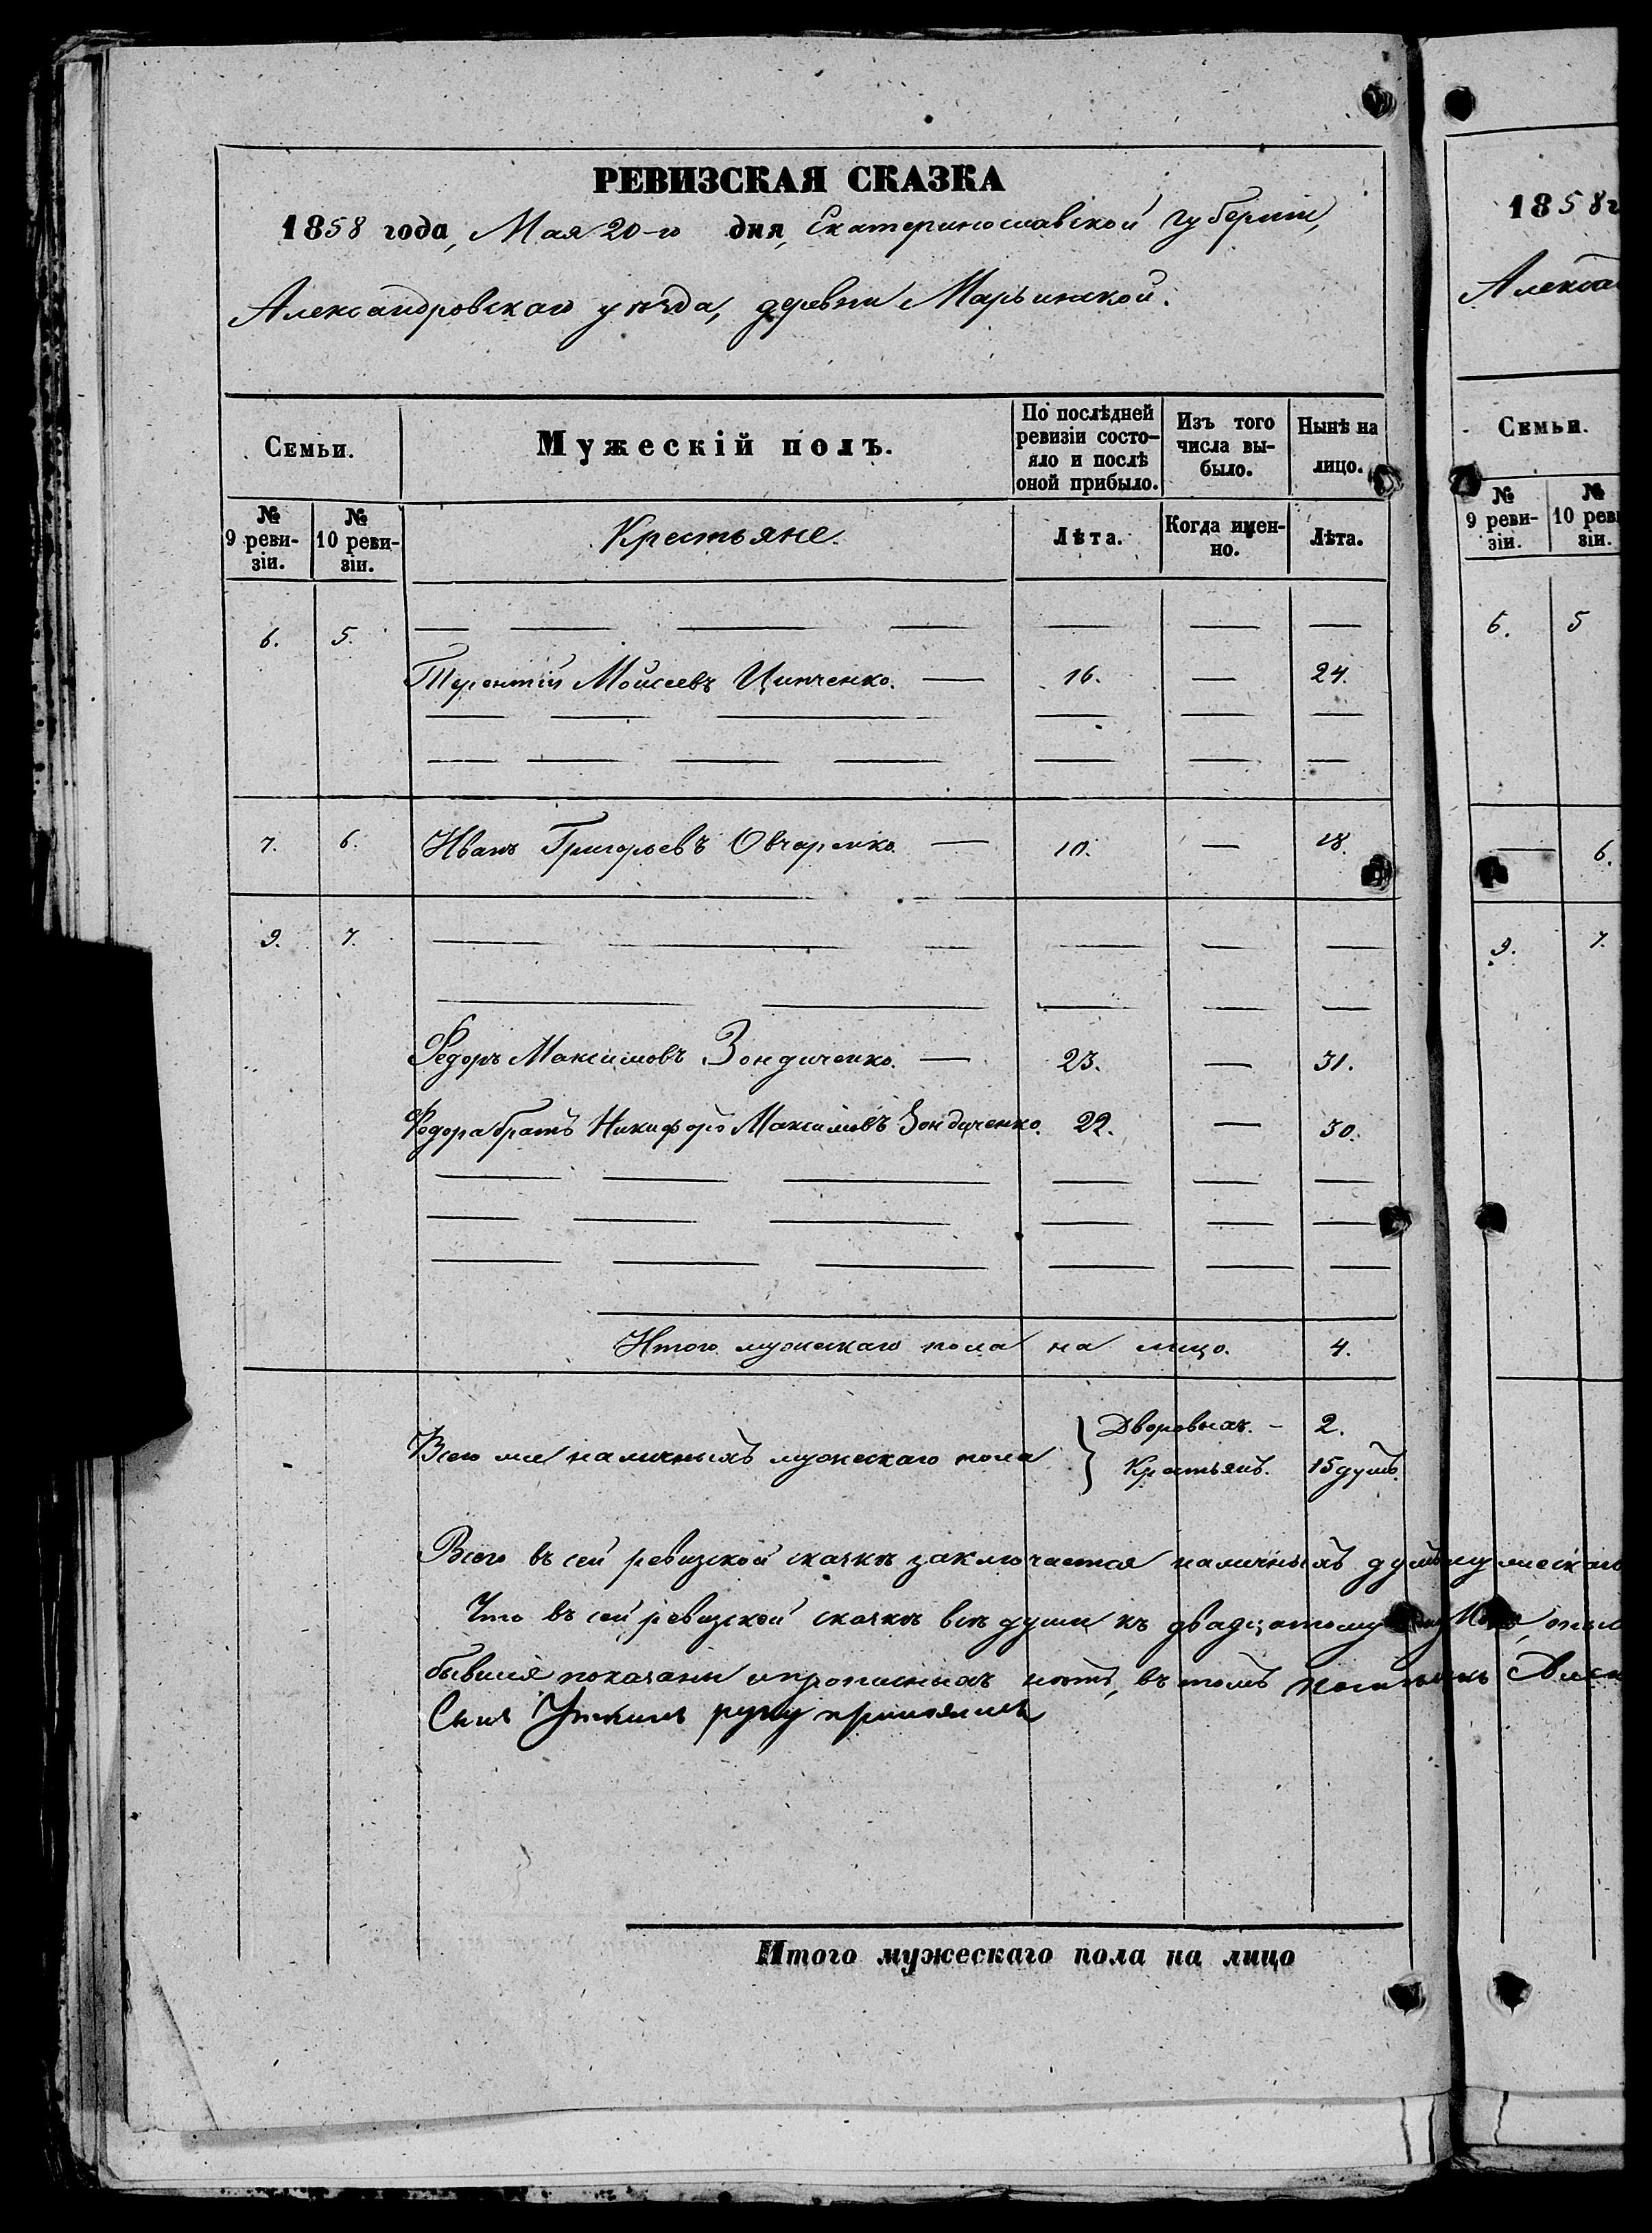 РЕВИЗСКАЯ СКАЗКА
1858 года, Мая 20-го дня, Екатеринославской губернии,
Александровскаго уѣзда, деревни Марьинской.
Семьи.
Мужескій полъ.
По послѣдней ревизіи состо-
яло и послѣ
оной прибыло.
Изъ того
числа вы-
было.
Нынѣ на
лицо.
№
9 реви-
зіи.
№
10 реви-
зіи.
Крестьяне.
Лѣта.
Когда имен-
но.
Лѣта.
6. 5.
Терентій Моисеевъ Ципченко. — 16. — 24.
7. 6. Иванъ Григорьевъ Овчаренко — 10. — 18.
9. 7.
Федоръ Максимовъ Зондиченко. — 23. — 31.
Федора братъ Никифоръ Максимовъ Зондиченко. 22. — 30.
Итого мужескаго пола на лицо. 4.
Всего же наличныхъ мужескаго пола
Дворовыхъ. - 2.
Крестьянъ. 15 душъ.
Всего въ сей ревизской сказкѣ заключается наличныхъ душъ мужескаго
Что въ сей ревизской сказкѣ всѣ души къ двадцатому
бывшія показаны и прописныхъ нѣтъ, въ томъ
руку приложилъ
Итого мужескаго пола на лицо
1858 г
Алекса
Семьи.
№
9 реви-
зіи.
№
10 реви
зіи.
6. 5
— 6.
9. 7.